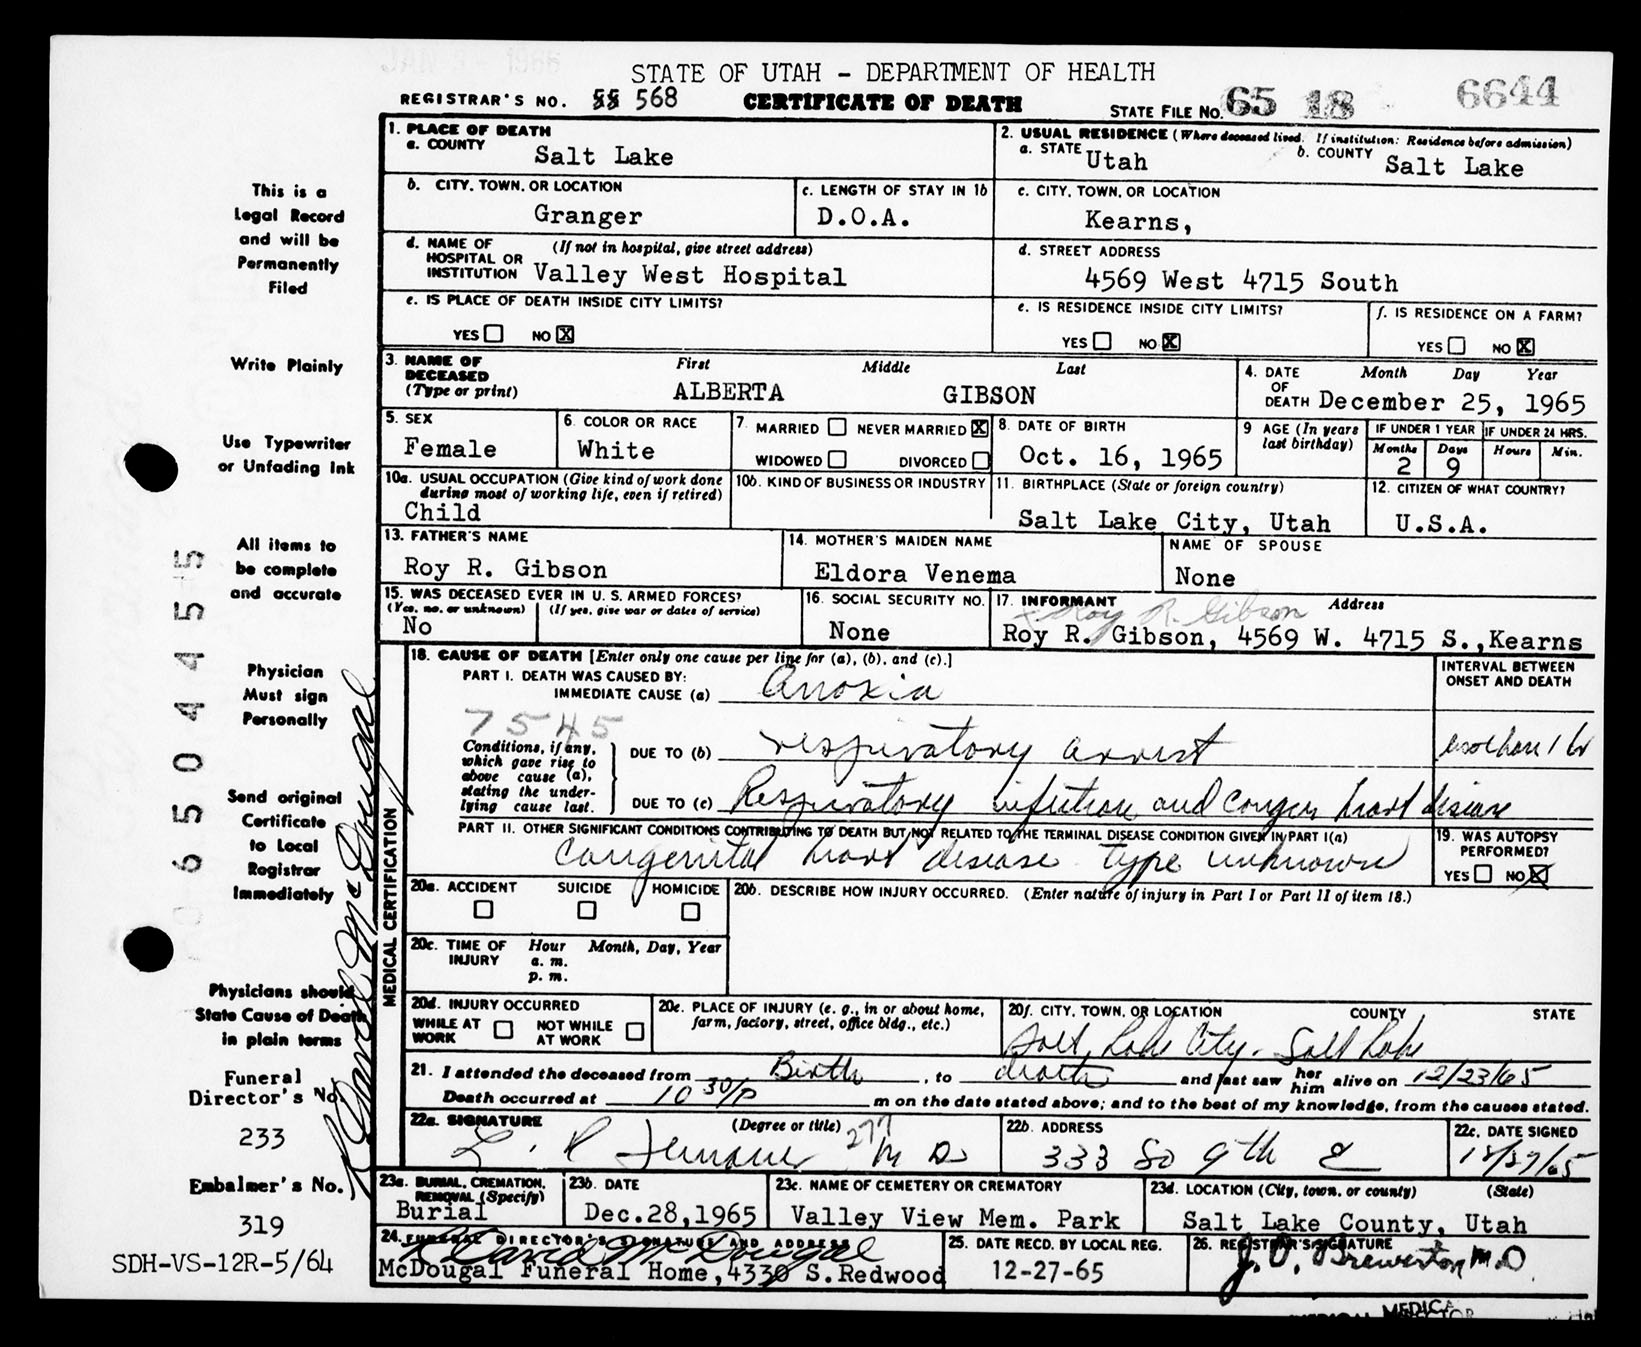 STATE OF UTAH – DEPARTMENT OF HEALTH
REGISTRAR'S NO. 568 CERTIFICATE OF DEATH STATE FILE NO. 65 18 6644
1. PLACE OF DEATH
a. COUNTY Salt Lake
2. USUAL RESIDENCE (Where deceased lived. If institution: Residence before admission)
a. STATE Utah b. COUNTY Salt Lake
b. CITY, TOWN, OR LOCATION
Granger
c. LENGTH OF STAY IN 1b
D.O.A.
c. CITY, TOWN, OR LOCATION
Kearns,
d. NAME OF HOSPITAL OR INSTITUTION (If not in hospital, give street address)
Valley West Hospital
d. STREET ADDRESS
4569 West 4715 South
e. IS PLACE OF DEATH INSIDE CITY LIMITS?
YES NO X
e. IS RESIDENCE INSIDE CITY LIMITS?
YES NO X
f. IS RESIDENCE ON A FARM?
YES NO X
3. NAME OF DECEASED (Type or print)
First Middle Last
ALBERTA GIBSON
4. DATE OF DEATH Month Day Year
December 25, 1965
5. SEX
Female
6. COLOR OR RACE
White
7. MARRIED NEVER MARRIED X
WIDOWED DIVORCED
8. DATE OF BIRTH
Oct. 16, 1965
9 AGE (In years last birthday)
IF UNDER 1 YEAR IF UNDER 24 HRS.
Months Days Hours Min.
2 9
10a. USUAL OCCUPATION (Give kind of work done during most of working life, even if retired)
Child
10b. KIND OF BUSINESS OR INDUSTRY
11. BIRTHPLACE (State or foreign country)
Salt Lake City, Utah
12. CITIZEN OF WHAT COUNTRY?
U.S.A.
13. FATHER'S NAME
Roy R. Gibson
14. MOTHER'S MAIDEN NAME
Eldora Venema
NAME OF SPOUSE
None
15. WAS DECEASED EVER IN U. S. ARMED FORCES?
(Yes, no, or unknown) (If yes, give war or dates of service)
No
16. SOCIAL SECURITY NO.
None
17. INFORMANT Address
x Roy R. Gibson
Roy R. Gibson, 4569 W. 4715 S.,Kearns
18. CAUSE OF DEATH [Enter only one cause per line for (a), (b), and (c).]
INTERVAL BETWEEN ONSET AND DEATH
PART I. DEATH WAS CAUSED BY:
IMMEDIATE CAUSE (a) Anoxia
7545
Conditions, if any, which gave rise to above cause (a), stating the underlying cause last.
DUE TO (b) respiratory arrest
DUE TO (c) Respiratory infection and congen heart disease
PART II. OTHER SIGNIFICANT CONDITIONS CONTRIBUTING TO DEATH BUT NOT RELATED TO THE TERMINAL DISEASE CONDITION GIVEN IN PART I(a)
Congenital heart disease type unknown
19. WAS AUTOPSY PERFORMED?
YES NO X
20a. ACCIDENT SUICIDE HOMICIDE
20b. DESCRIBE HOW INJURY OCCURRED. (Enter nature of injury in Part I or Part II of item 18.)
20c. TIME OF INJURY Hour Month, Day, Year
a. m.
p. m.
20d. INJURY OCCURRED
WHILE AT WORK NOT WHILE AT WORK
20e. PLACE OF INJURY (e. g., in or about home, farm, factory, street, office bldg., etc.)
20f. CITY, TOWN, OR LOCATION COUNTY STATE
Salt Lake City. Salt Lake
21. I attended the deceased from Birth, to death and last saw her him alive on 12/23/65
Death occurred at 10 30/P m on the date stated above; and to the best of my knowledge, from the causes stated.
22a. SIGNATURE (Degree or title)
277
M D
22b. ADDRESS
333 So 9th E
22c. DATE SIGNED
23a. BURIAL, CREMATION, REMOVAL (Specify)
Burial
23b. DATE
Dec.28,1965
23c. NAME OF CEMETERY OR CREMATORY
Valley View Mem. Park
23d. LOCATION (City, town, or county) (State)
Salt Lake County, Utah
24. FUNERAL DIRECTOR'S SIGNATURE AND ADDRESS
R David McDougal
McDougal Funeral Home,4330 S.Redwood
25. DATE RECD. BY LOCAL REG.
12-27-65
26. REGISTRAR'S SIGNATURE
J. D. Brewerton M.D.
MEDICAL CERTIFICATION
This is a
Legal Record
and will be
Permanently
Filed
Write Plainly
Use Typewriter
or Unfading Ink
All items to
be complete
and accurate
Physician
Must sign
Personally
Send original
Certificate
to Local
Registrar
Immediately
Physicians should
State Cause of Death
in plain terms
Funeral
Director's No.
233
Embalmer's No.
319
SDH-VS-12R-5/64
R David McDougal
6504455